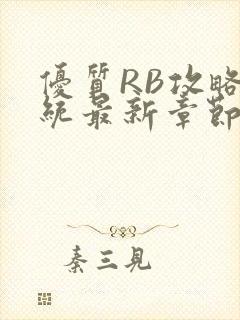 優質RB攻略
統最新章節
秦三見